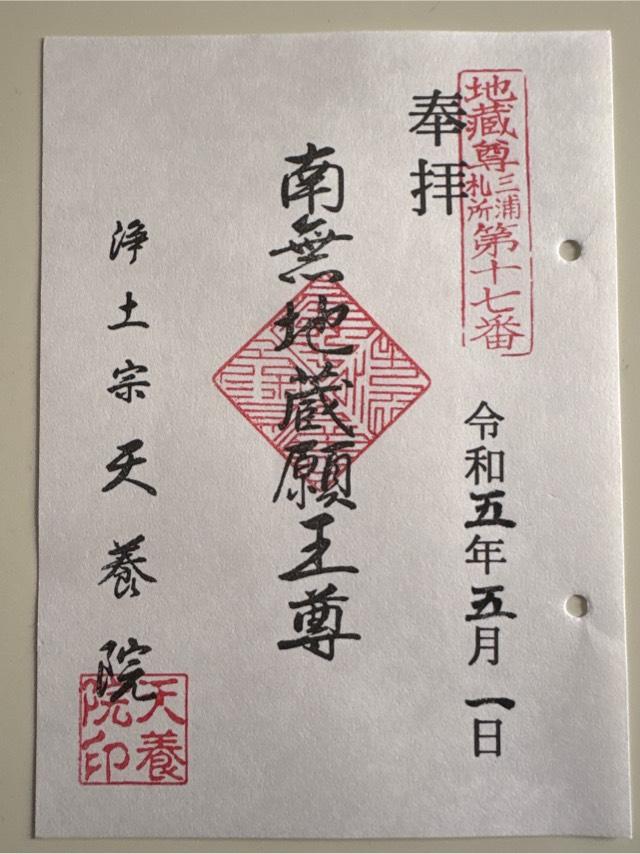 地蔵尊三浦札所第十七番
奉拝
令和五年五月一日
南無地蔵願王尊
浄土宗天養院
天養院印